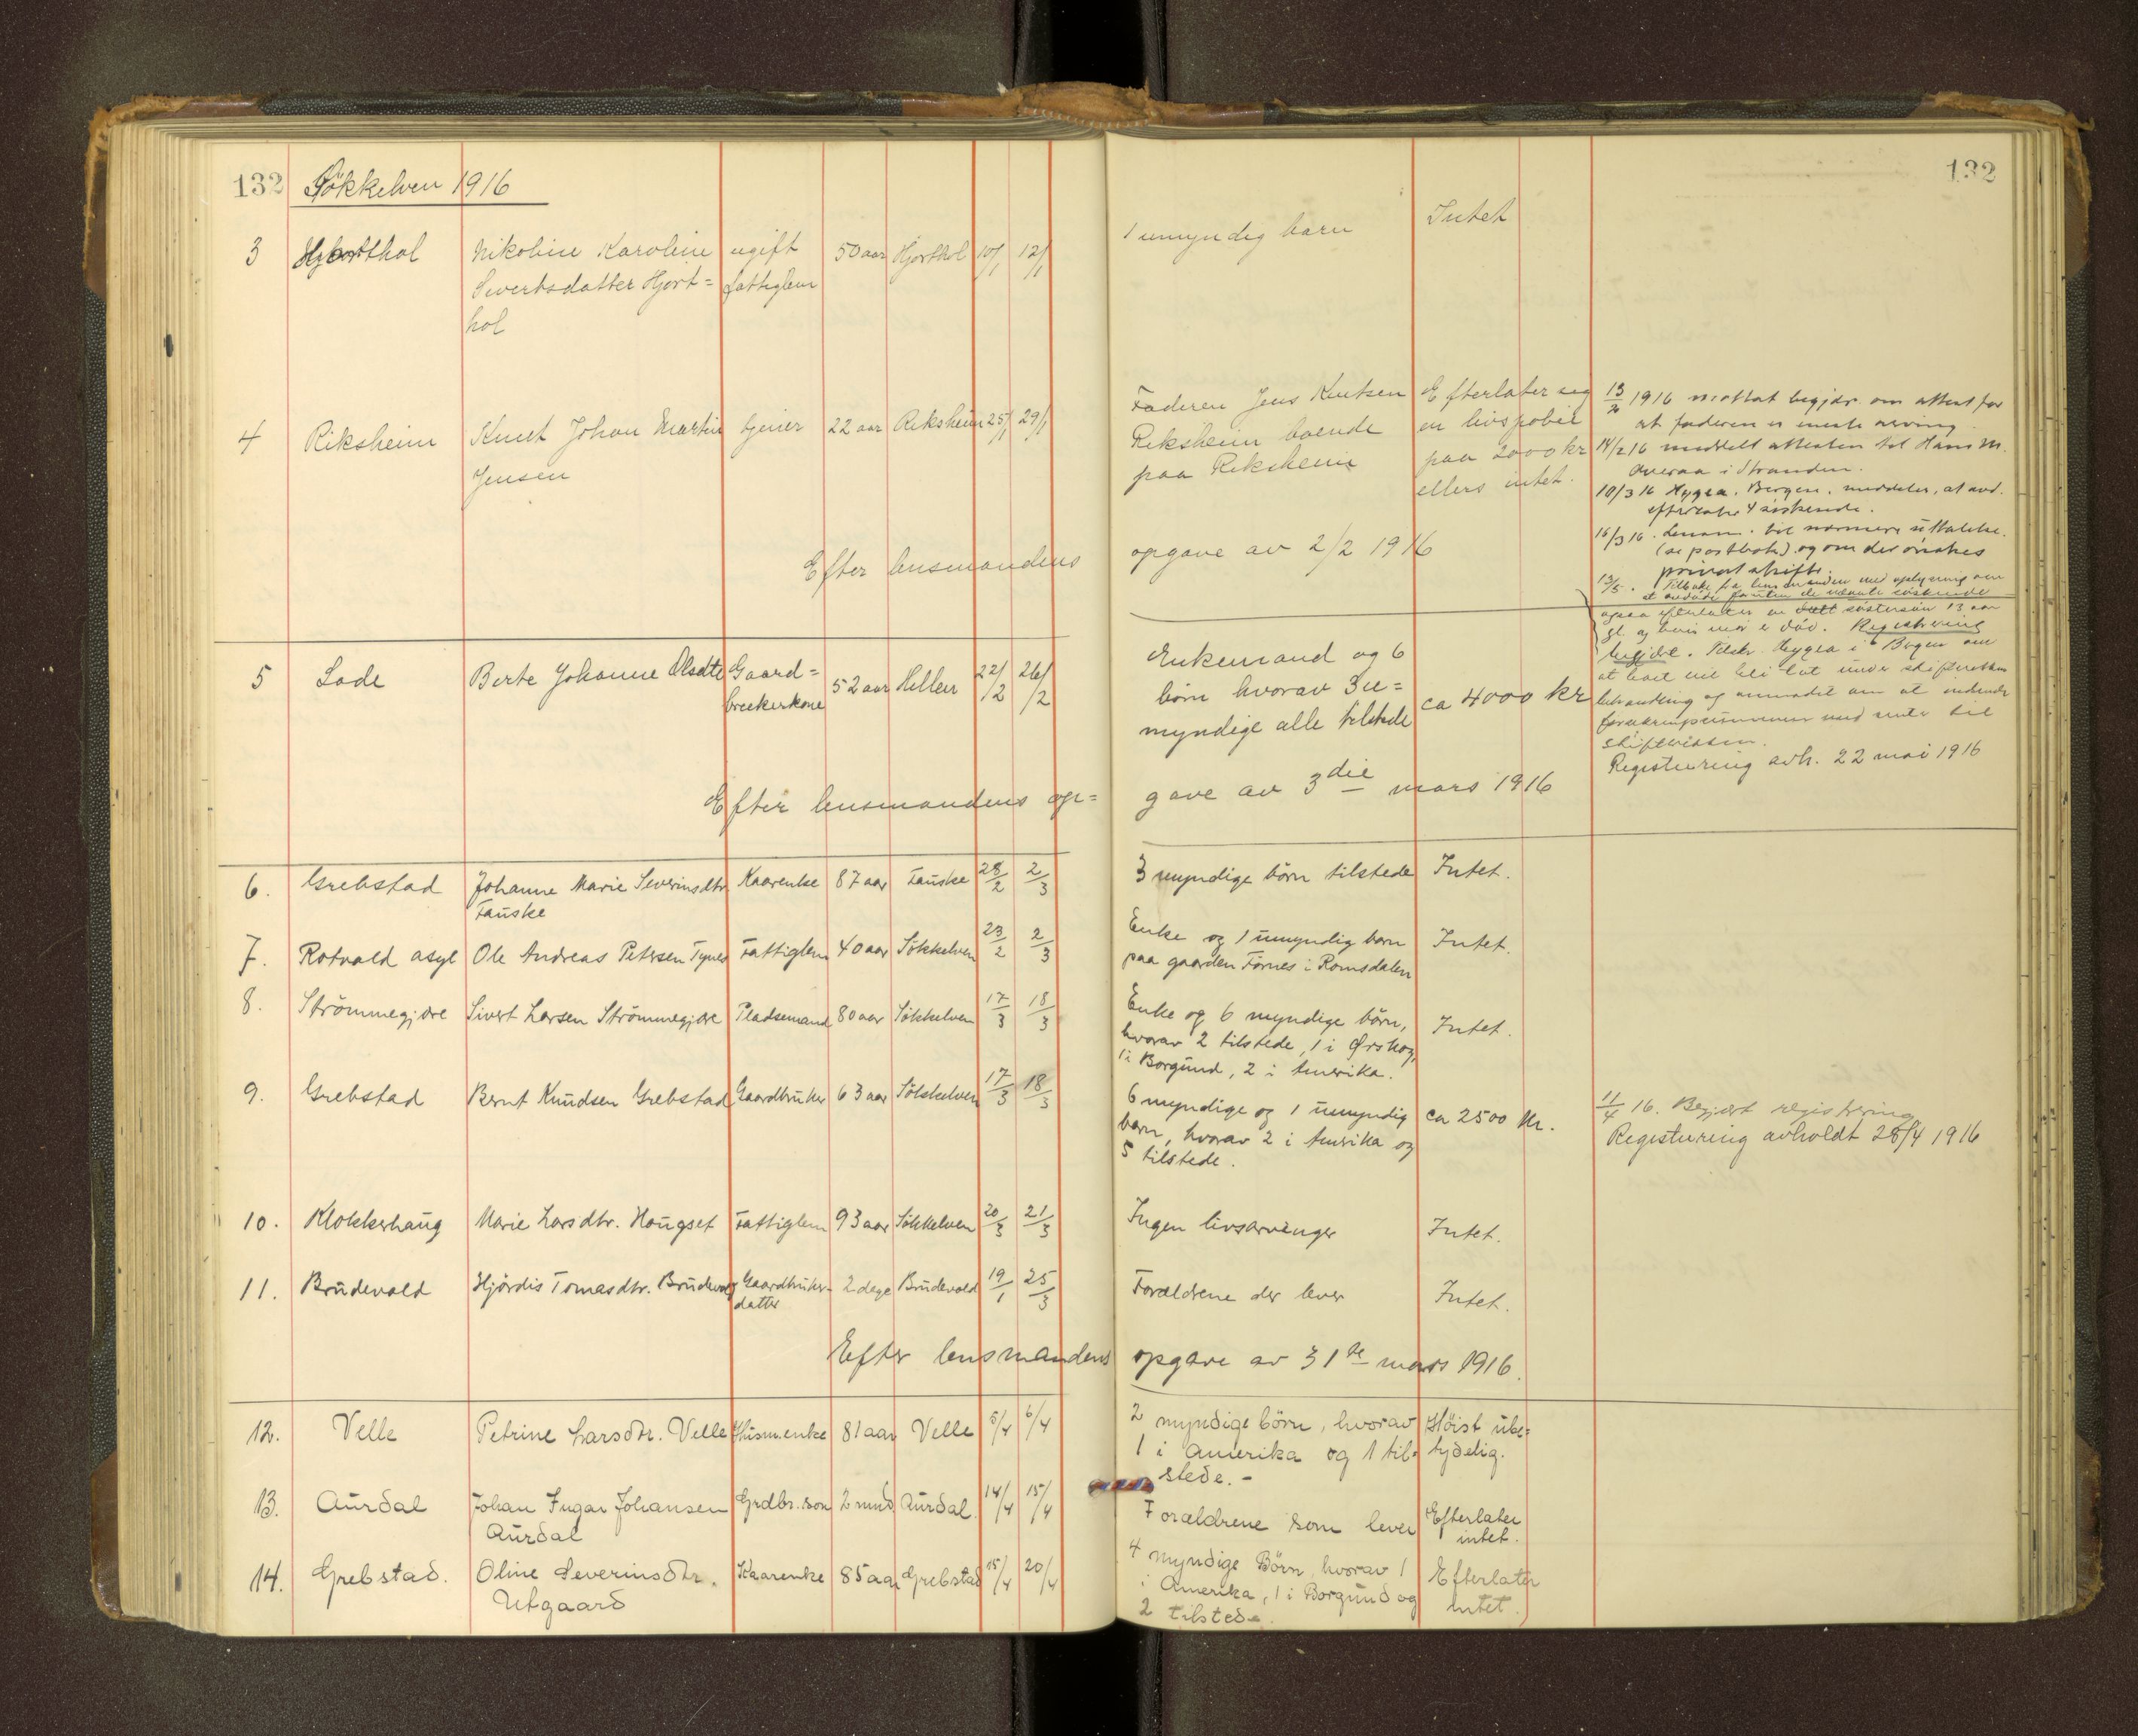 132 Søkkelven 1916
132
3 Hjorthol Nikoline Karoline ugift 50 aar Hjorthol 10/1 12/1 1 umyndig barn Intet
Sivertsdatter Hjort= fattiglem
hol
4 Riksheim Knut Johan Martin tjener 22 aar Riksheim 25/1 29/1 Faderen Jens Knutsen Efterlater seg
Jensen Riksheim boende en livspolice
paa Riksheim paa 2000 kr
ellers intet.
13/2 1916 mottat begjær om attest for
at faderen er eneste arving
14/2 16 meddelt attesten til Hans M.
Overaa i Stranden.
10/3 16 Hygea, Bergen, meddeler, at avd.
efterlater 4 søskende.
16/3 16. Lensm. til nærmere uttalelse.
(se postbok) og om der ønskes
privat skifte.
13/5. Tilbake fra lensmanden med oplysning om
at avdøde foruten de nævnte søskende
ogsaa efterlater en søstersøn 13 aar
gl. og hvis mor er død. Registrering
begjært. Tilskr. Hygea i Bergen om
at boet vil bli tat under skifterettens
behandling og anmodet om at indsende
forsikringssummen med renter til
skifteretten.
Registrering avh. 22 mai 1916
Efter lensmandens opgave av 2/2 1916
5 Lade Berte Johanne Olsdtr Gaard= 52 aar Hellen 22/2 26/2 Enkemand og 6
brukerkone børn hvorav 3 u= ca 4000 kr
myndige alle tilstede
Efter lensmandens op= gave av 3die mars 1916
6. Grebstad Johanne Marie Severinsdtr. Kaarenke 87 aar Fauske 28/2 2/3 3 myndige børn tilstede Intet.
Fauske
7. Rotvold asyl Ole Andreas Petersen Tynes Fattiglem 40 aar Søkkelven 23/2 2/3 Enke og 1 umyndig barn Intet.
paa gaarden Fornes i Romsdalen
8. Strømmegjære Sivert Larsen Strømmegjære Pladsemand 80 aar Søkkelven 17/3 18/3 Enke og 6 myndige børn, Intet.
hvorav 2 tilstede, 1 i Ørskog,
1 i Borgund, 2 i Amerika.
9. Grebstad Bernt Knudsen Grebstad Gaardbruker 63 aar Søkkelven 17/3 18/3 6 myndige og 1 umyndig ca 2500 kr. 11/4 16. Begjært registrering
barn, hvorav 2 i Amerika og Registrering avholdt 28/4 1916
5 tilstede.
10. Klokkerhaug Marie Larsdtr. Haugset Fattiglem 93 aar Søkkelven 20/3 21/3 Ingen livsarvinger Intet.
11. Brudevold Hjørdis Tomasdtr. Brudevold Gaardbruker- 2 dage Brudevold 19/1 25/3 Forældrene der lever Intet.
datter
Efter lensmandens opgave av 31te mars 1916.
12. Velle Petrine Larsdtr. Velle Husm.enke 81 aar Velle 5/4 6/4 2 myndige børn, hvorav Høist ube=
1 i Amerika og 1 til= tydelig.
stede. -
13. Aurdal Johan Ingar Johansen Grdbr. søn 2 mnd Aurdal. 14/4 15/4 Forældrene som lever Efterlater
Aurdal intet.
14. Grebstad. Oline Severinsdtr. Kaarenke 85 aar Grebstad 15/4 20/4 4 myndige Børn, hvorav 1 Efterlater
Utgaard i Amerika, 1 i Borgund og intet.
2 tilstede.